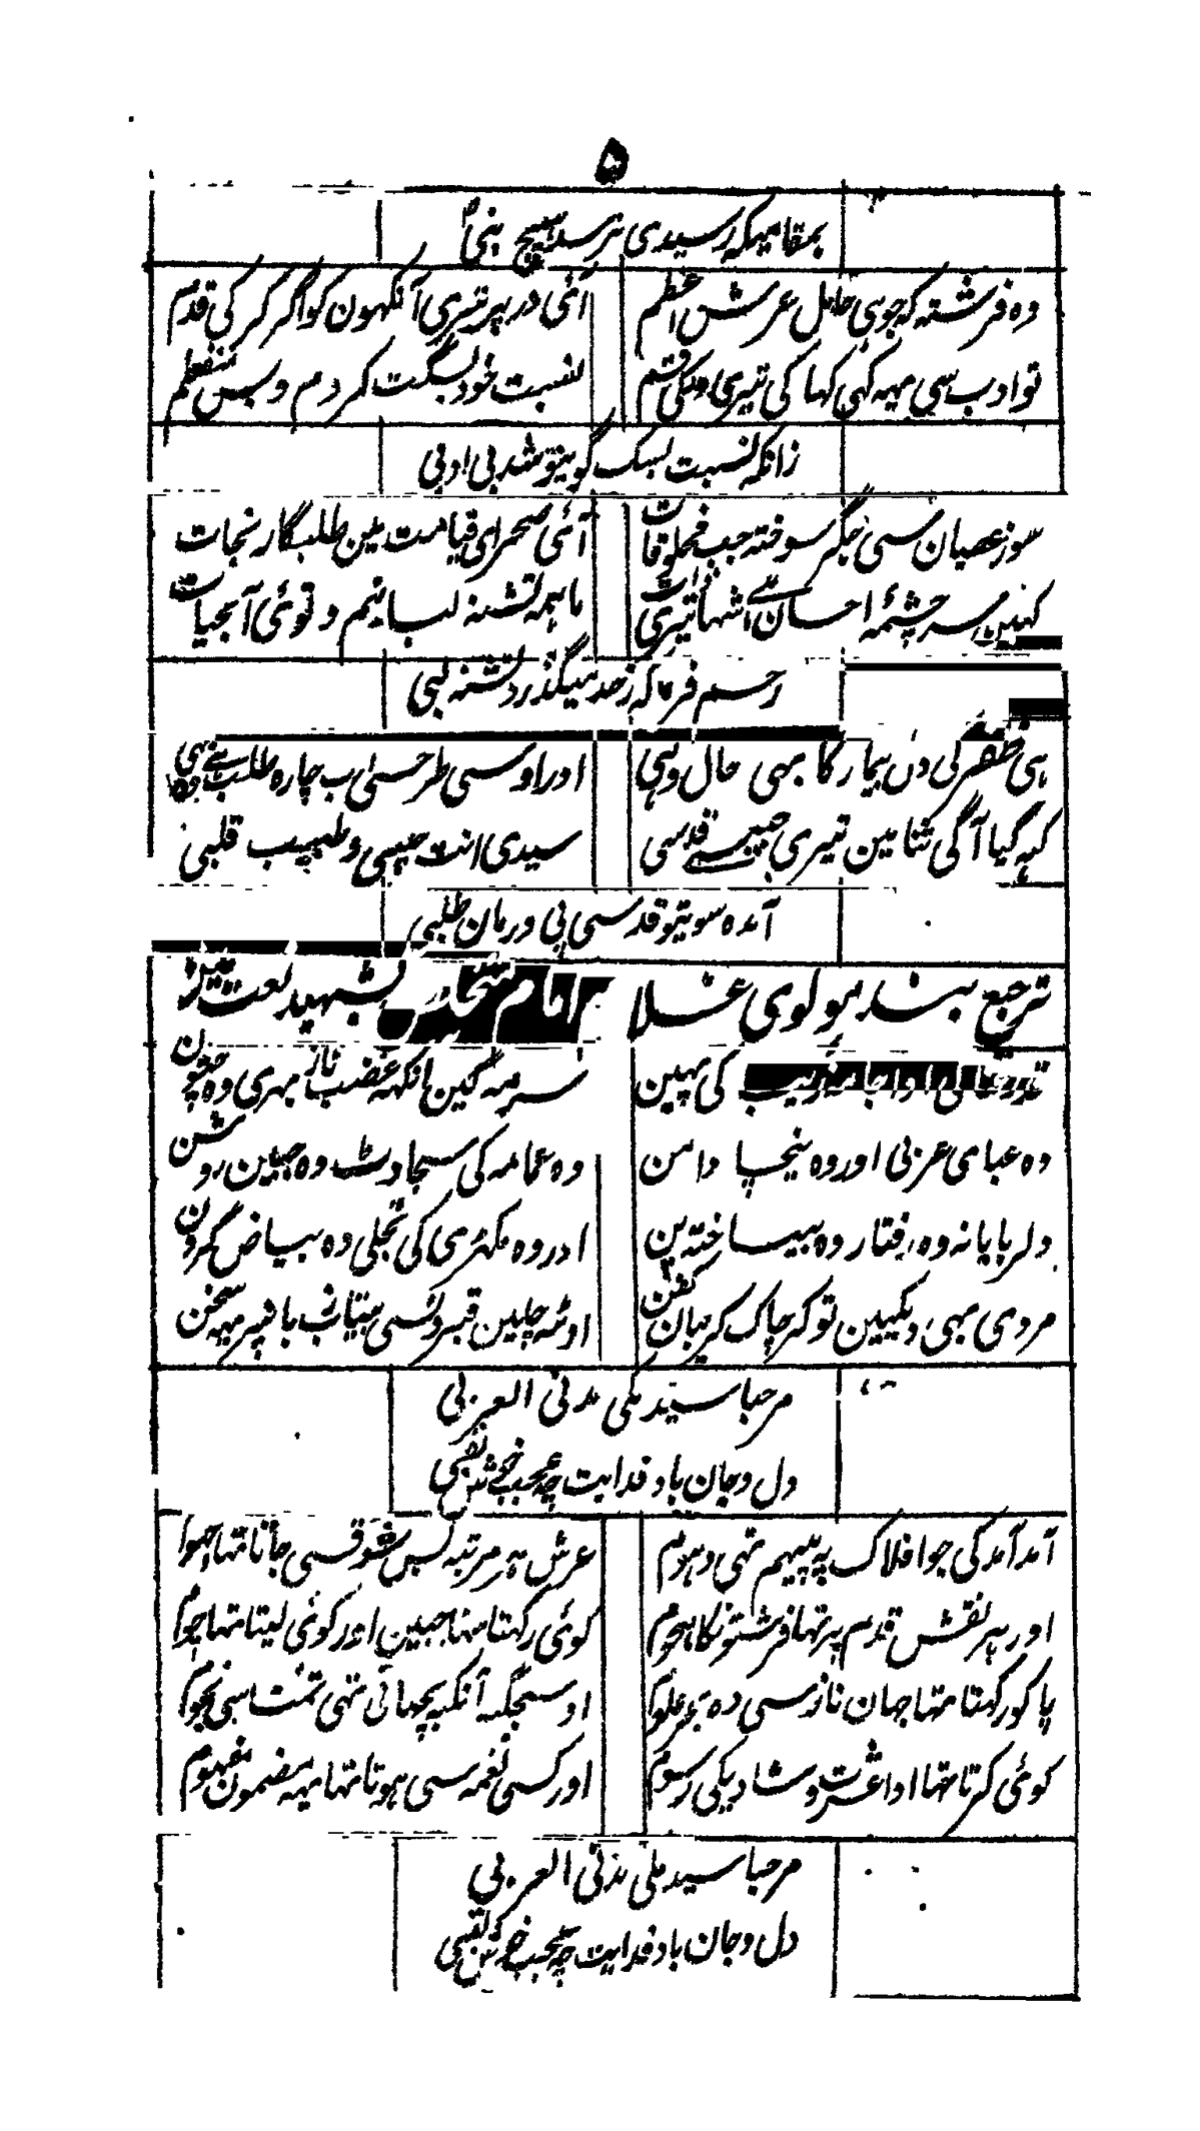 ۵
بمقامیکہ رسیدی نرسد ہیچ نبی
وہ فرشتہ کہ جو ہی حامل عرش اعظم آئی در پر تیری آنکہون کو اگر کر کی قدم
تو ادب سی یہہ کہی کہا کی تیری قسم نسبت خود بسگت کردم و بس منفعلم
زانکہ نسبت بسگ کوی تو شد بی ادبی
سوز عصیان سی جگر سوختہ جب مخلوقات آئی صحرای قیامت مین طلبگار نجات
سر چشمۂ احسان ما ہمہ تشنہ لبانیم و توئی آبحیات
رحم فرما کہ ز حد میگذرد تشنہ لبی
ہی ظفر کی دل بیمار کا بہی حال وہی
کہہ گیا آگی ثنا مین تیری قدسی سیدی انت حبیبی و طبیب قلبی
آمدہ سوی تو قدسی پی درمان طلبی
ترجیع بند مولوی غلام امام شہید نعت مین
کی پہبن سرمہ گین انکہہ غضب ناز بہری وہ چتون
وہ عبای عربی اور وہ نیچا دامن وہ عمامہ کی سجاوٹ وہ جبین روشن
دلربایانہ وہ رفتار وہ بیساختہ پن اور وہ مکہڑی کی تجلی وہ بیاض گردن
مردی بہی دیکہین تو کر چاک گریبان کفن اوٹہہ چلین قبرونسی بیتاب یہہ سخن
مرحبا سید مکی مدنی العربی
دل و جان باد فدایت چہ عجب خوش لقبی
آمد آمد کی جو افلاک پہ پیہم تہی دہوم عرش ہر مرتبہ بس شوق سی جاتا تہا جہوم
اور ہر نقش قدم پر تہا فرشتونکا ہجوم کوئی رکہتا تہا جبین اور کوئی لیتا تہا چوم
پا کو رکہتا تہا جہان ناز سی وہ بحر علوم اوسجگہہ آنکہہ بچہاتی تہی تمنا سی نجوم
کوئی کرتا تہا ادا عشرت و شادیکی رسوم اور کسی نغمہ سی ہوتا تہا یہہ مضمون مفہوم
مرحبا سید مکی مدنی العربی
دل و جان باد فدایت چہ عجب خوش لقبی